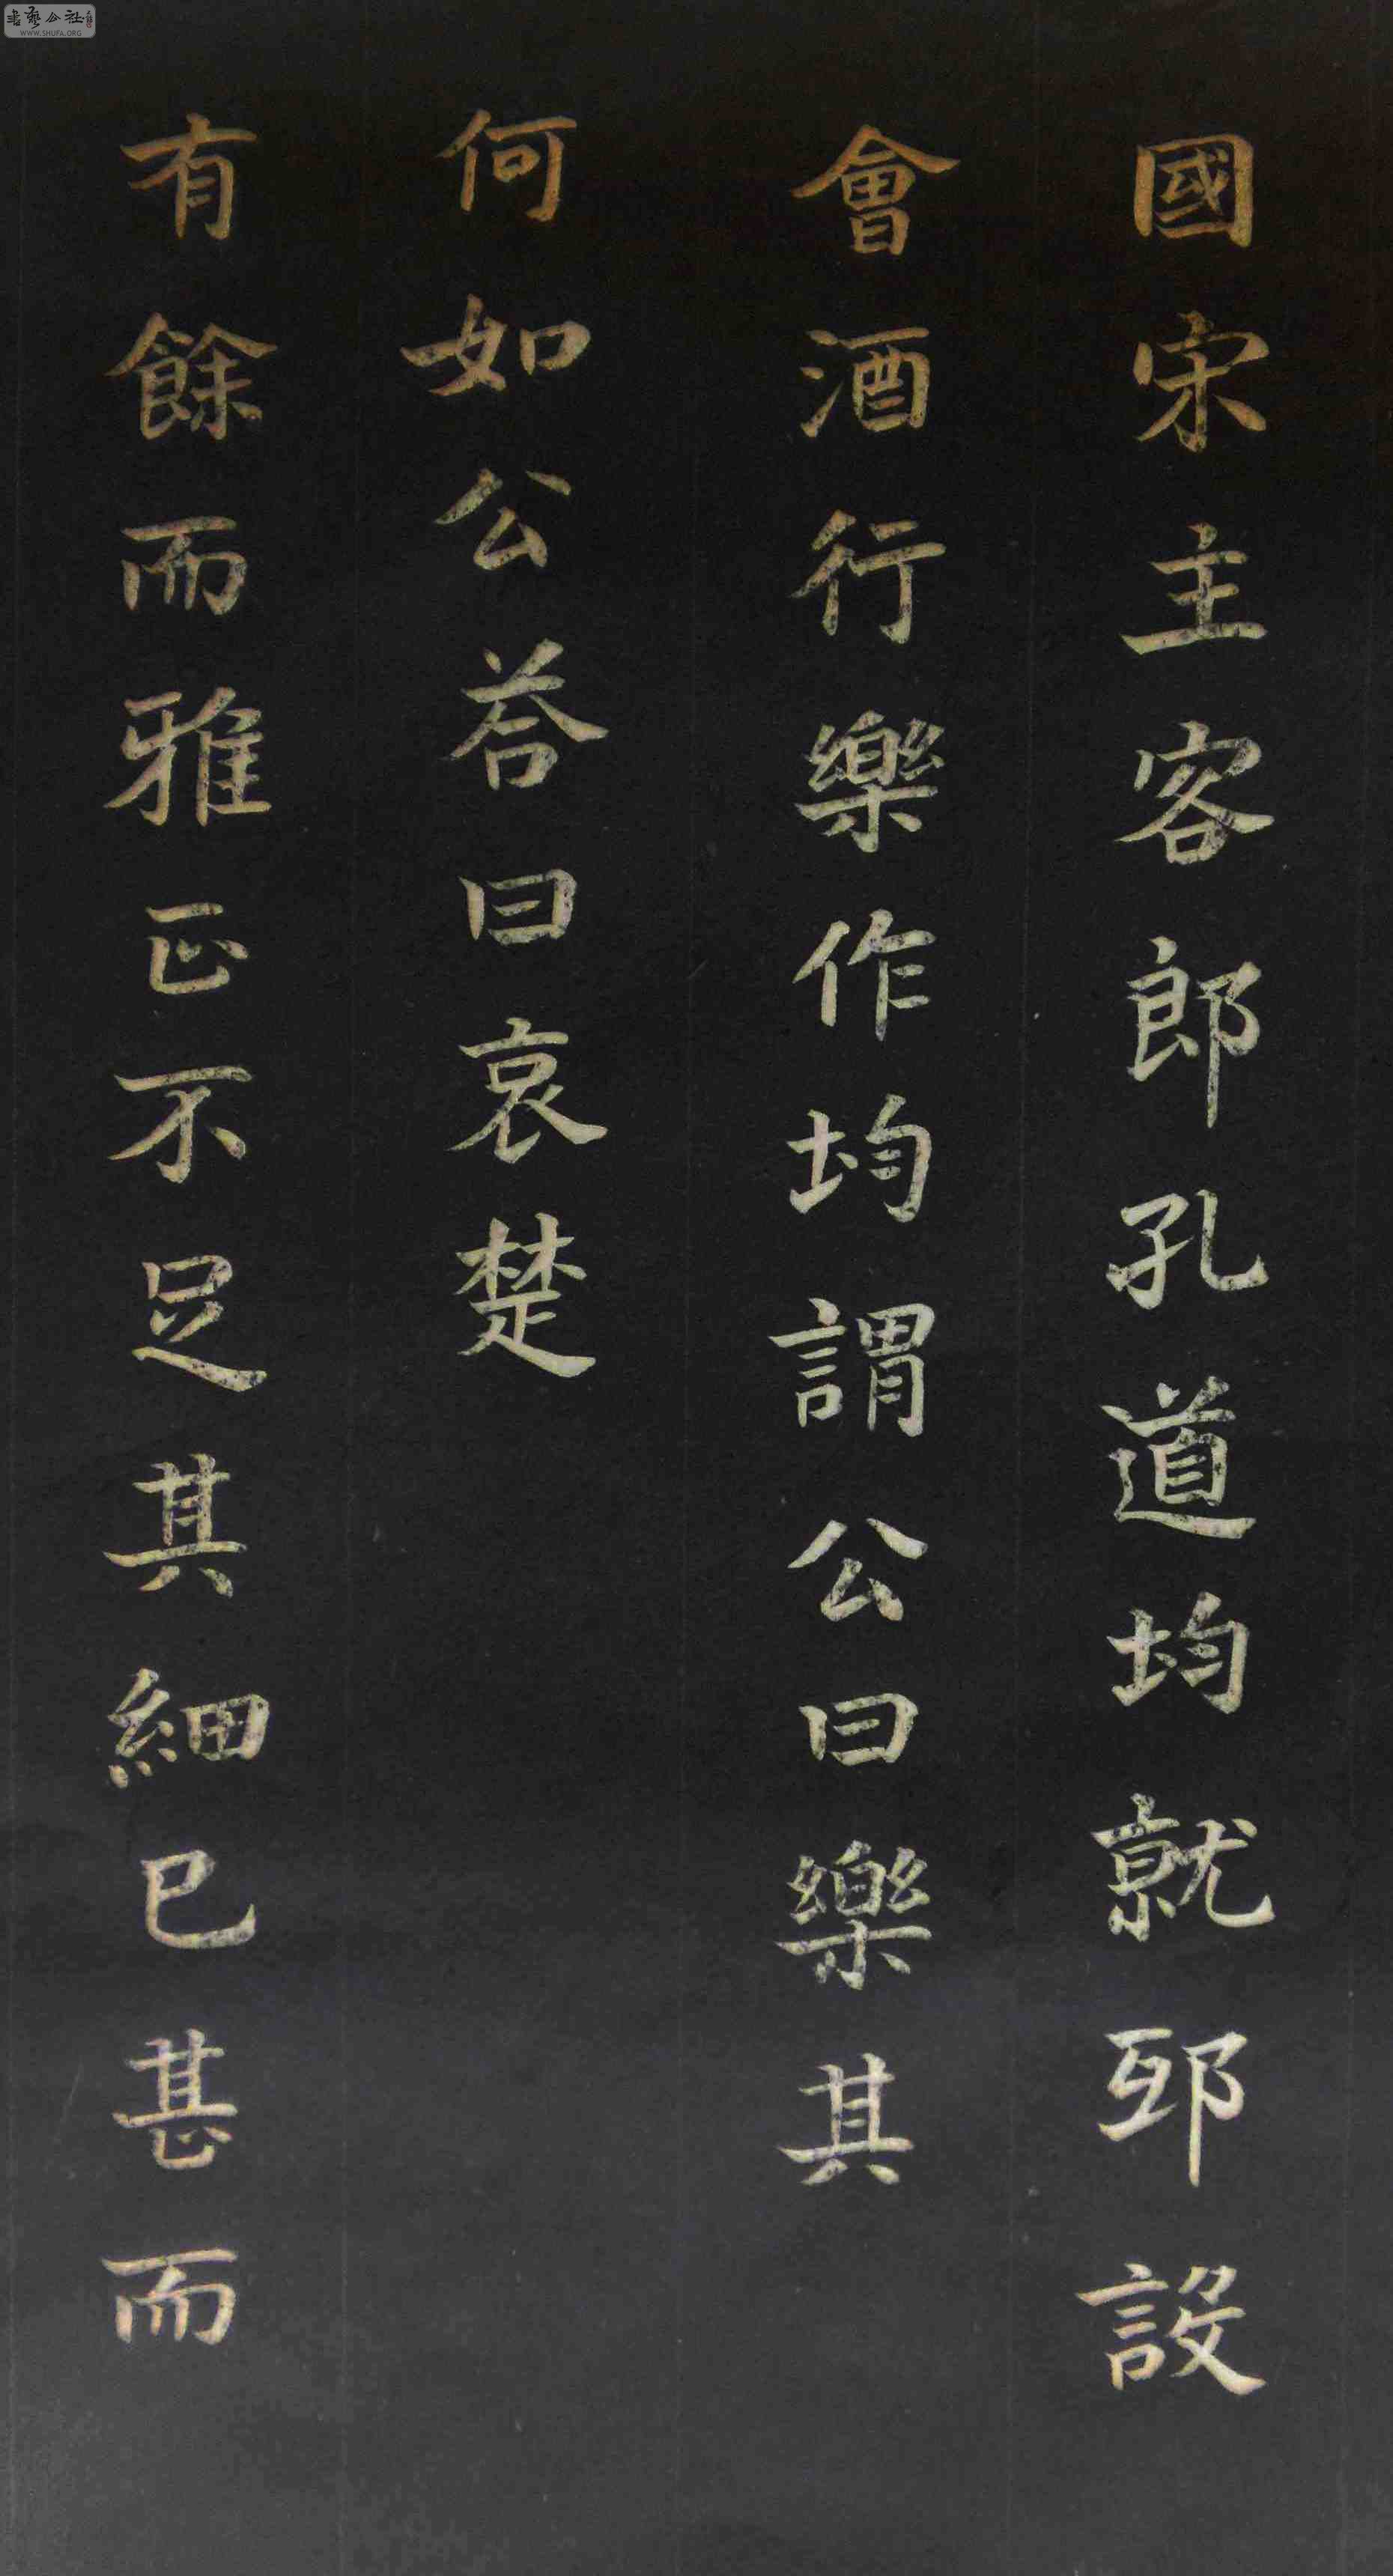 國宋主客郎孔道均就邸設
會酒行樂作均謂公曰樂其
何如公荅曰哀楚
有餘而雅正不足其細已甚而
書藝公社
WWW.SHUFA.ORG